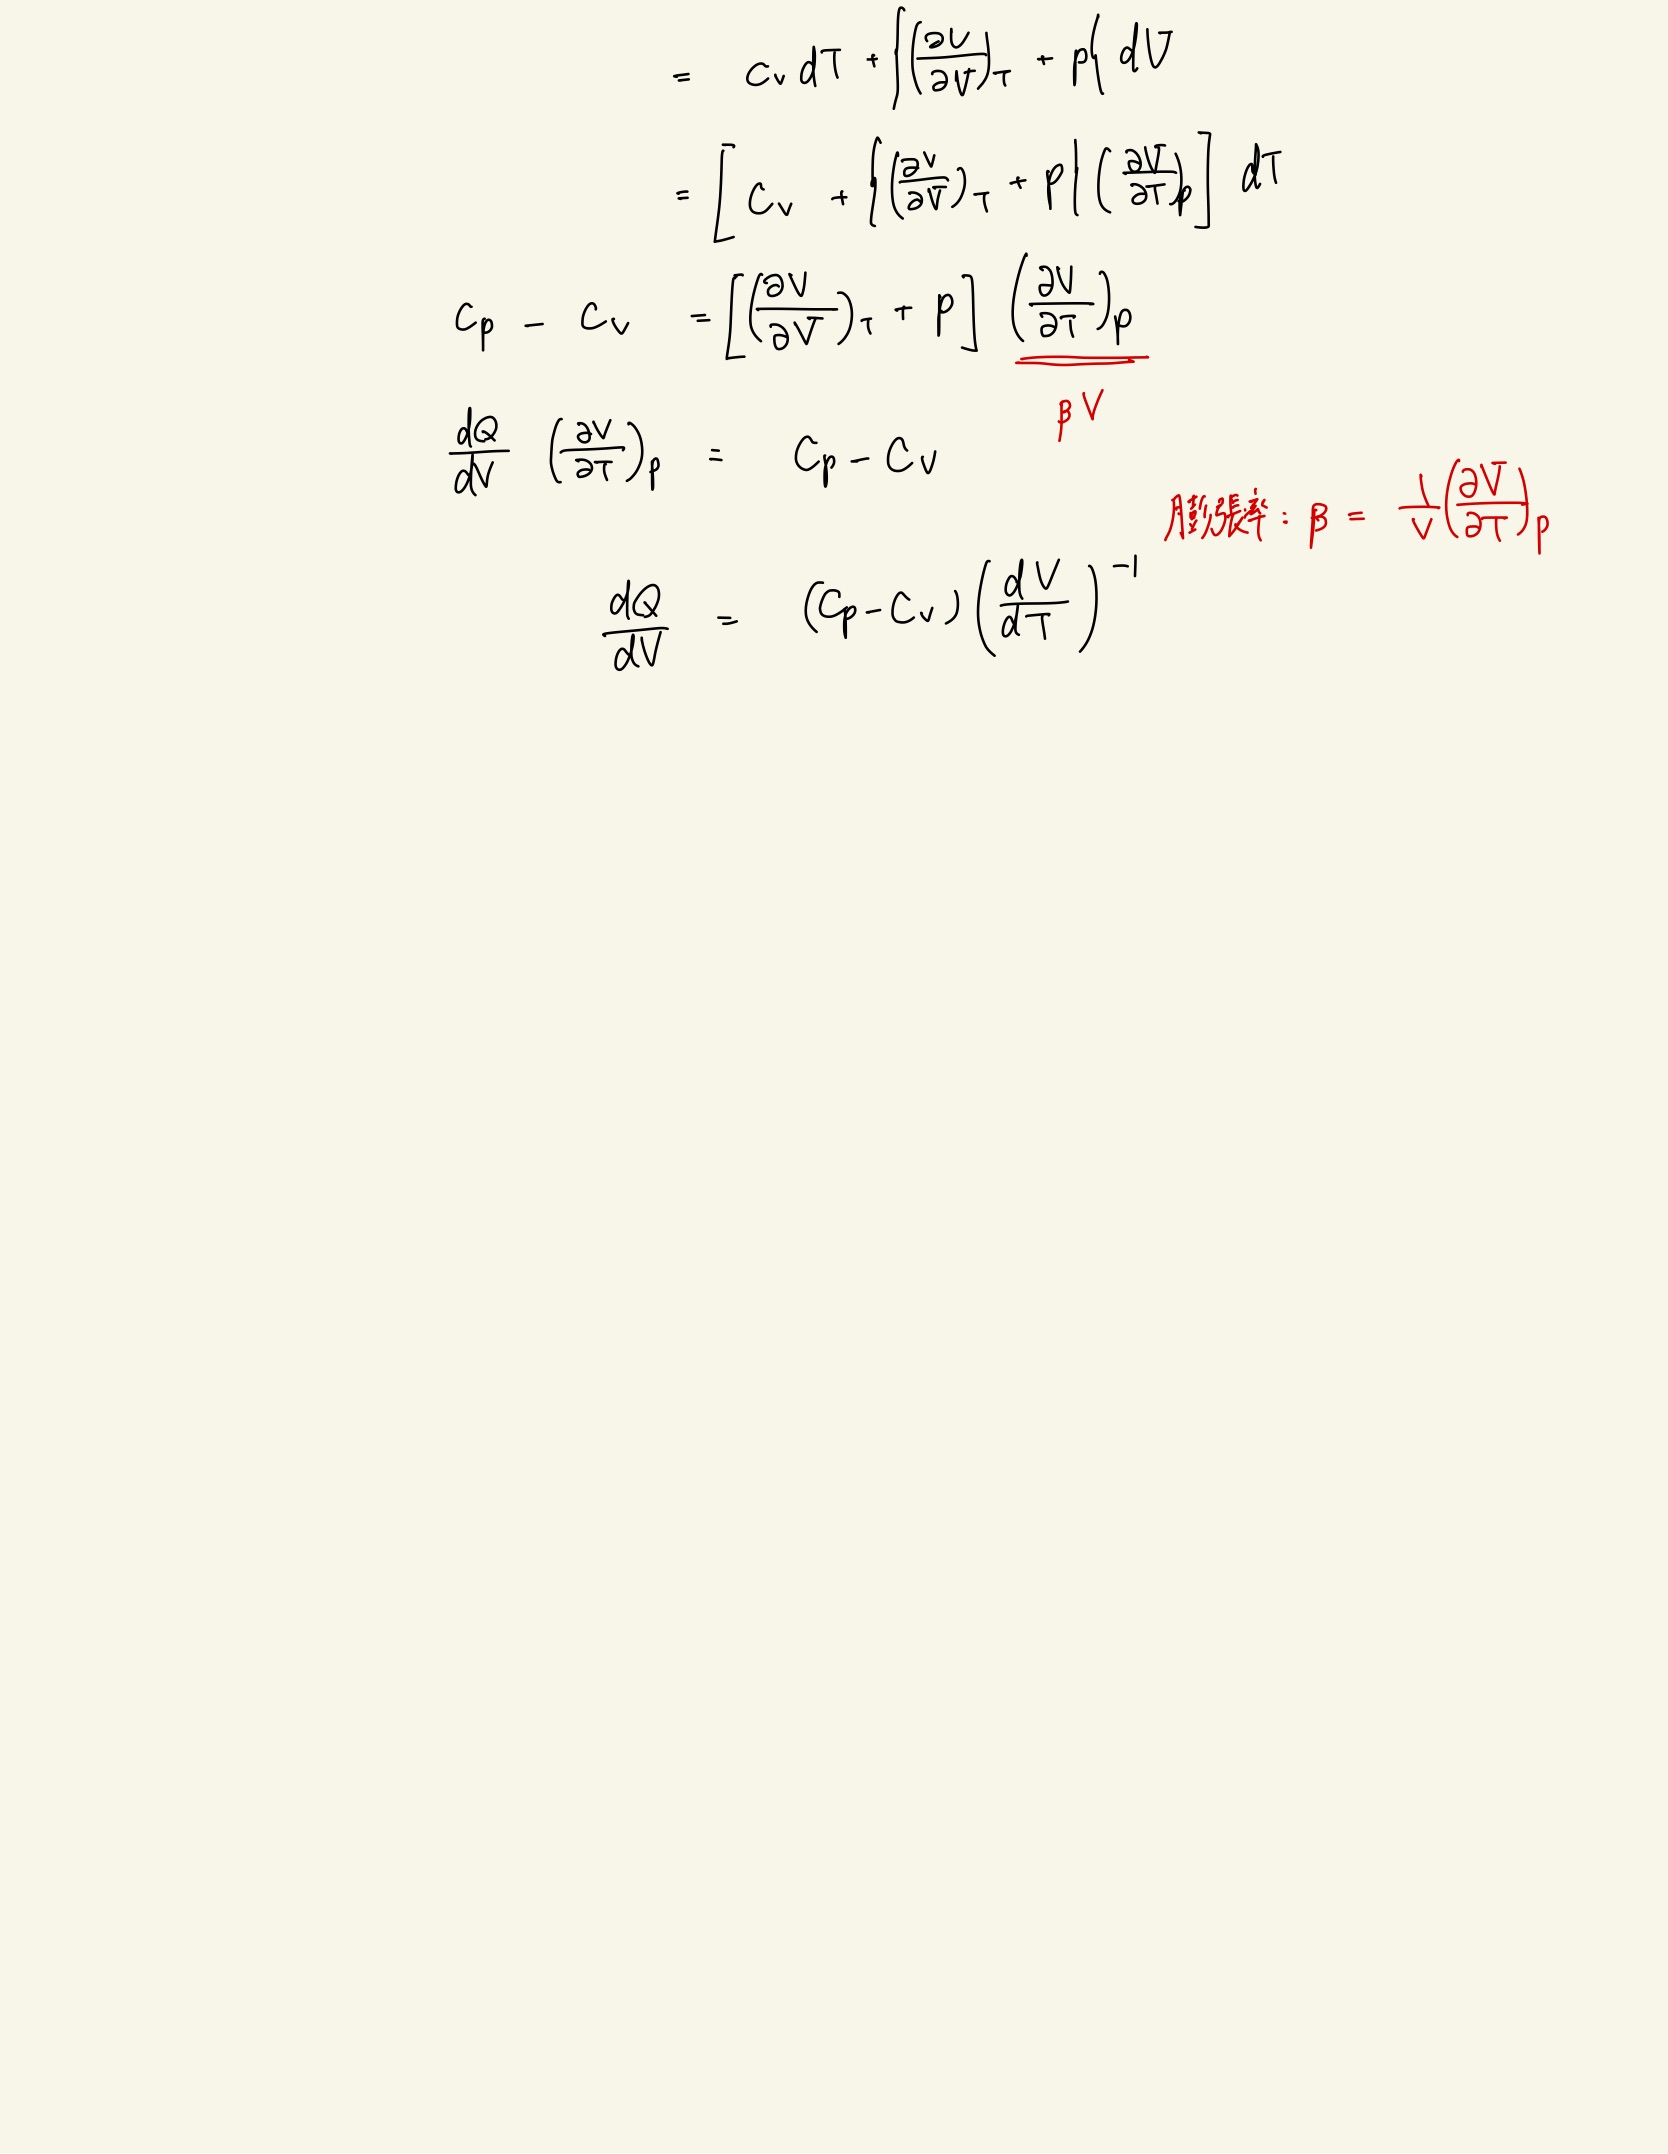 = Cv dT + {(∂U/∂V)_T + p} dV
= [Cv + {(∂V/∂V)_T + p} (∂V/∂T)_p] dT
Cp - Cv = [(∂V/∂V)_T + p] (∂V/∂T)_p
βV
dQ/dV (∂V/∂T)_p = Cp - Cv
膨張率: β = 1/V (∂V/∂T)_p
dQ/dV = (Cp - Cv) (dV/dT)^-1